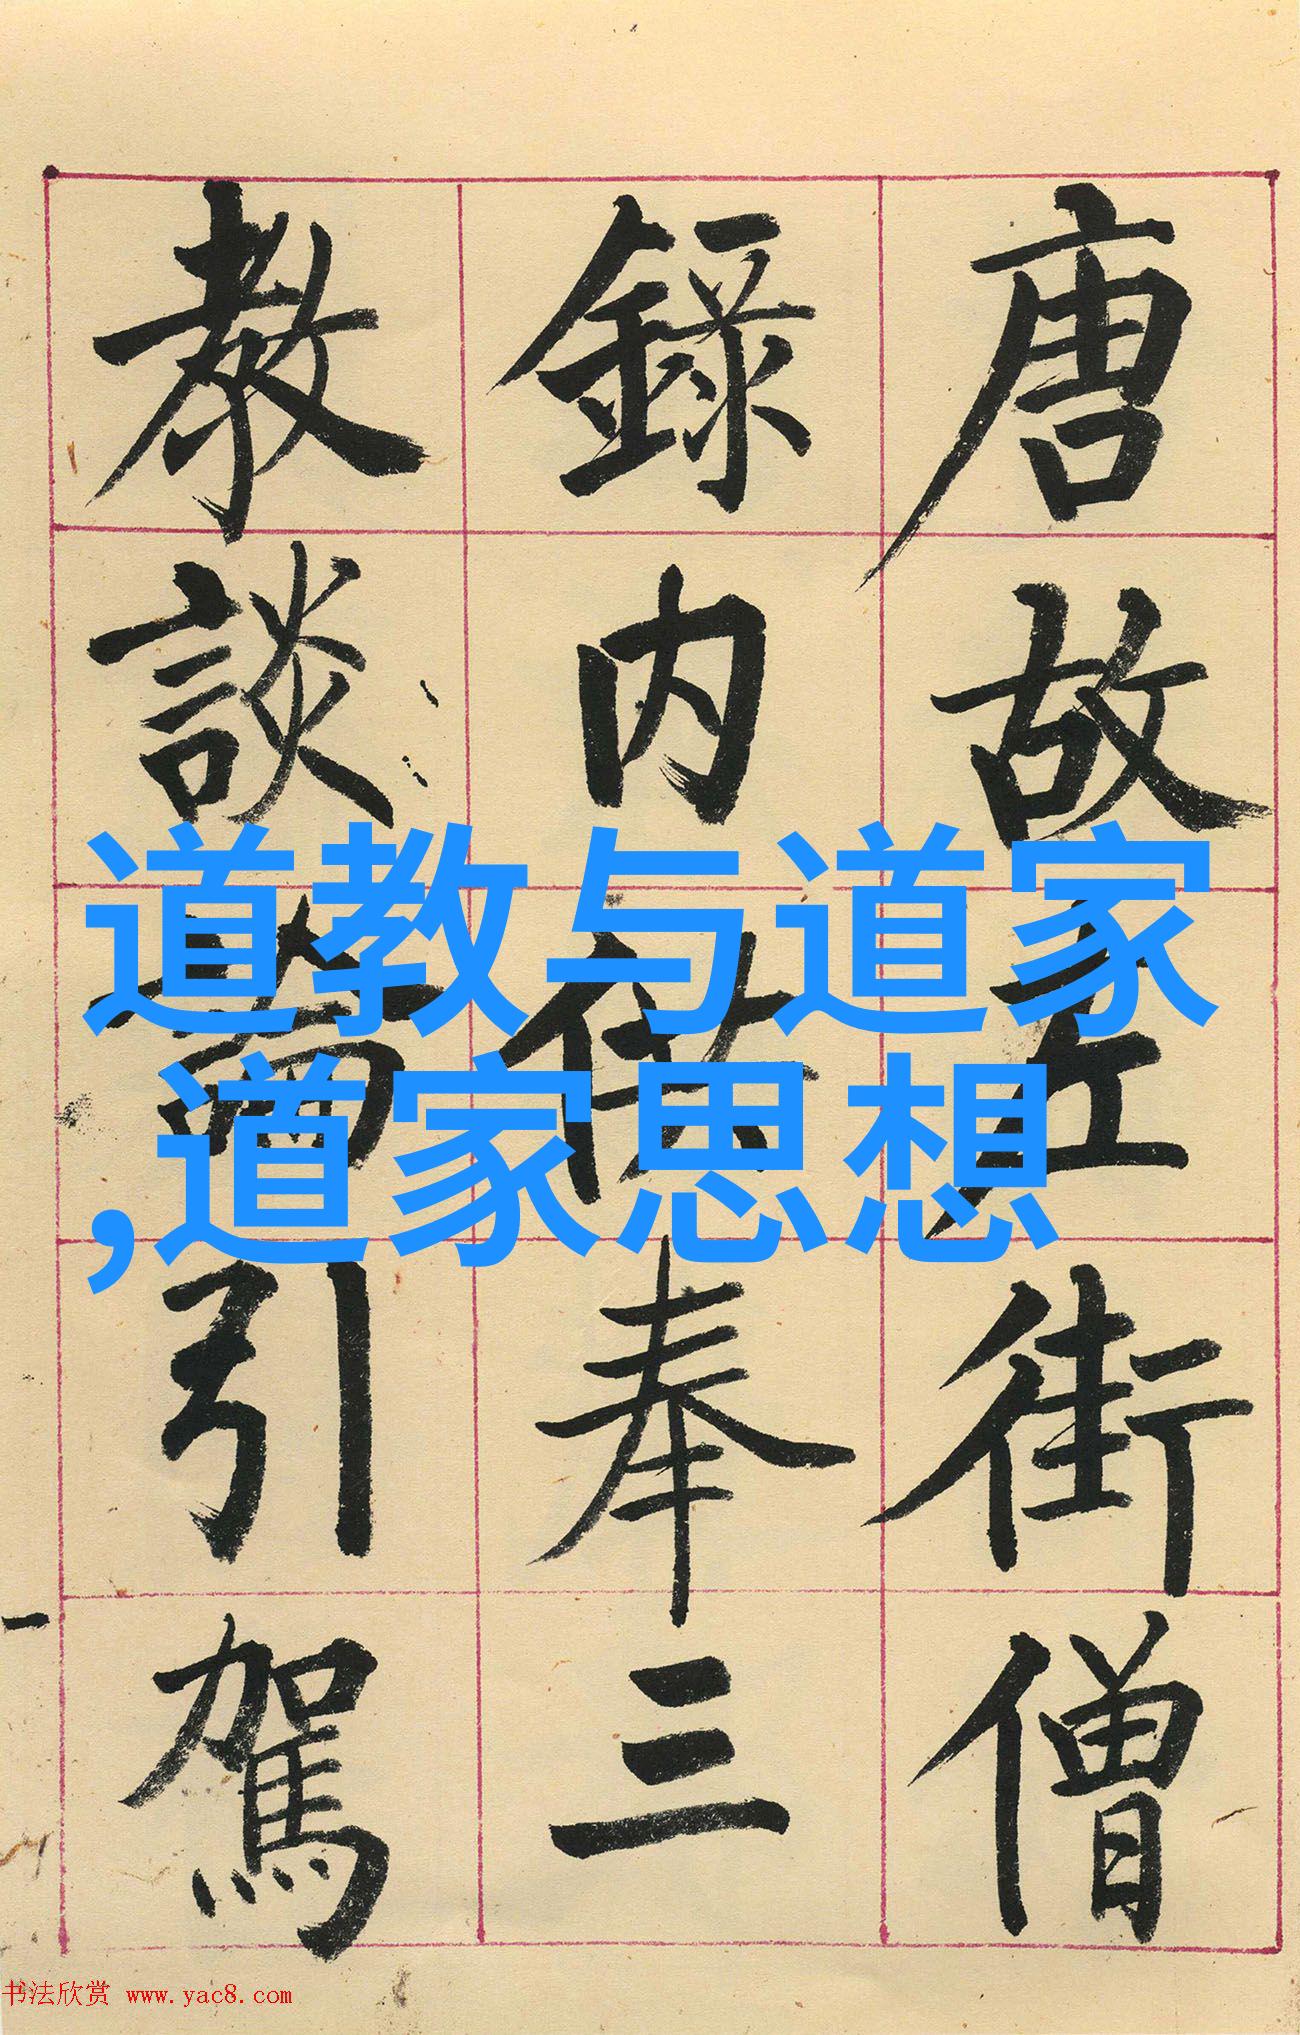 唐故左街僧
錄内供奉三
教談論引駕
道教与道家
,道家思想
书法欣赏 www.yac8.com